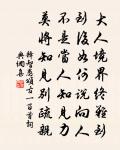 大人境界終難到
到後如何說向人
不是當人知見力
莫將知見別疏親
釋智愚頌古一百首詞
典網